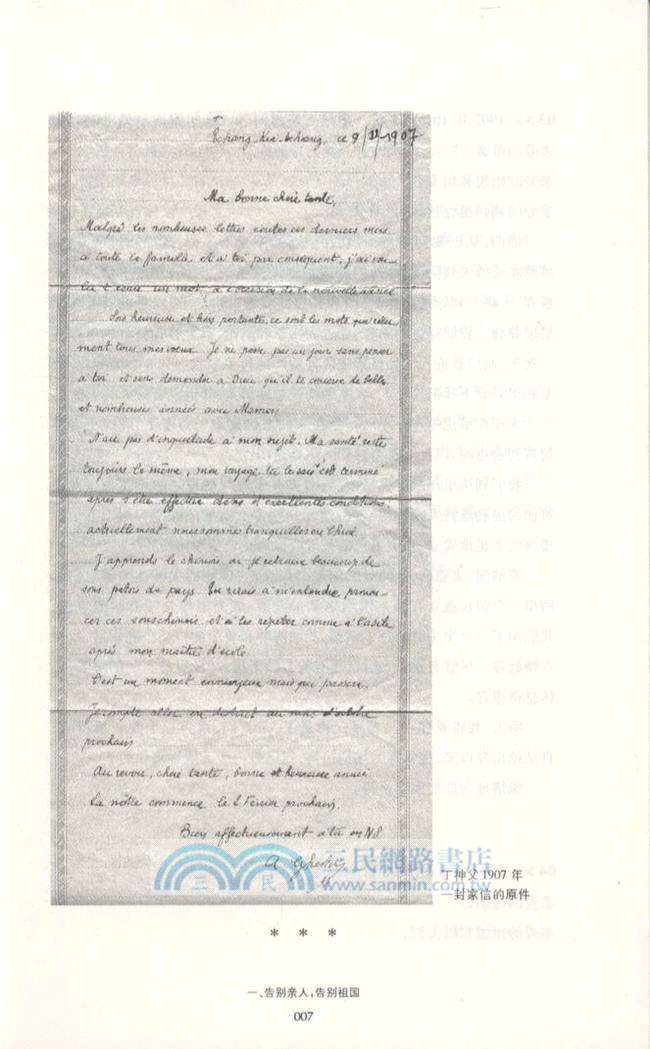 Tchang-Kia-tchoang, ce 9/11-1907
Ma bonne chère tante,
Malgré les nombeuses lettres écrites ces derniers mois
à toute la famille et à toi par conséquent, j'ai vou-
lu t'écrire un mot à l'occasion de la nouvelle année
Sois heureuse et bien portante, ce sont les mots que résu-
ment tous mes voeux. Je ne passe pas un jour sans penser
à toi et sans demander à Dieu qu'il te conserve de belles
et nombeuses années avec Maman.
N'aie pas d'inquiétude à mon sujet. Ma santé reste
toujours la même, mon voyage tu le sais s'est terminé
après s'être effectué dans d'excellentes conditions
actuellement nous sommes tranquilles en Chine.
J'apprends le chinois où je retrouve beaucoup de
sons patois du pays. Tu rirais à m'entendre pronon-
cer ces sons chinois et à les répéter comme à l'asile
après mon maître d'école.
C'est un moment ennuyeux mais qui passera.
Je compte aller en district au mois d'octobre
prochain
Au revoir, chère tante, bonne et heureuse année
La nôtre commence le 2 Février prochain.
Bien affectueusement à toi en NS
A
三民網路書店
三 民
www.sanmin.com.tw
丁神父 1907 年
一封家信的原件
* * *
一、告别亲人,告别祖国
007